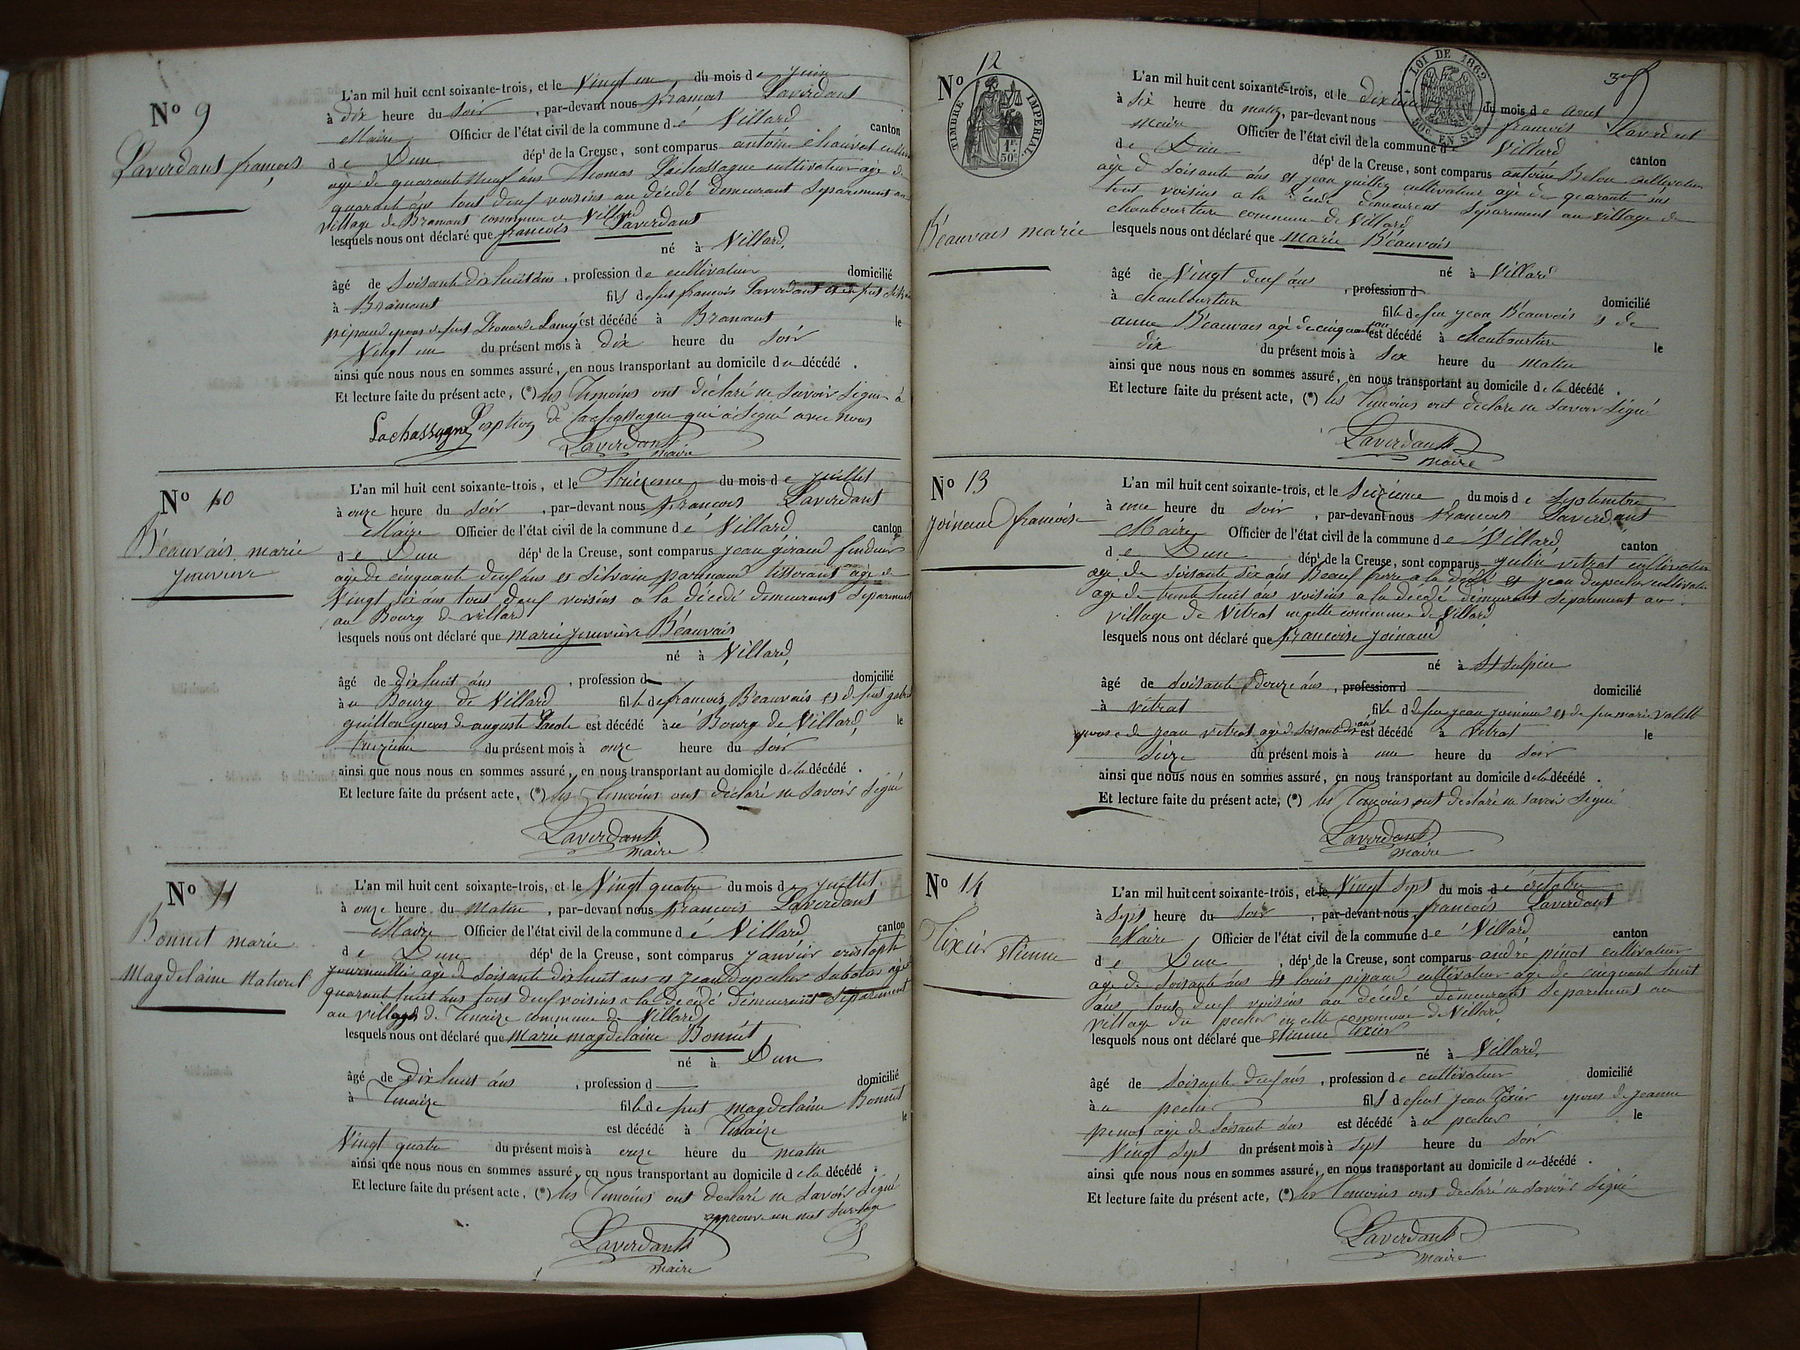 No 9
Laverdant françois
L'an mil huit cent soixante-trois, et le Vingt un du mois de juin
à dix heure du soir, par-devant nous françois Laverdant
Maire Officier de l'état civil de la commune de Villard canton
de Dun dépt de la Creuse, sont comparus antoine chauvat
agé de quarante neuf ans Thomas Lachassagne cultivateur agé de
quarante ans tous deux voisins au décédé demeurant séparément au
village de Bramont commune de Villard
lesquels nous ont déclaré que françois Laverdant
né à Villard,
âgé de soisante dix huit ans, profession de cultivateur domicilié
à Bramont fils de feu françois Laverdant
pipaud epoux de feut Lamy est décédé à Bramant le
Vingt un du présent mois à dix heure du soir
ainsi que nous nous en sommes assuré, en nous transportant au domicile du décédé.
Et lecture faite du présent acte, (*) les témoins ont déclaré ne savoir signer à
Lachassagne l'exption de lachassagne qui a signé avec nous
Laverdant
maire
No 10
Béauvais marie
jenevieve
L'an mil huit cent soixante-trois, et le treizieme du mois de juillet
à onze heure du soir, par-devant nous françois Laverdant
Maire Officier de l'état civil de la commune de Villard canton
de Dun dépt de la Creuse, sont comparus jean giraud
agé de cinquante deuf ans et silvain parinaud agé de
Vingt six ans tous deuf voisins a la décédé demeurant séparement
au Bourg de villard
lesquels nous ont déclaré que marie jenevieve Béauvais
né à Villard,
âgé de dix huit ans, profession d
à u Bourg de Villard fille de françois Beauvais et de feut
guillon epouse de auguste est décédé à u Bourg de Villard, le
treizieme du présent mois à onze heure du soir
ainsi que nous nous en sommes assuré, en nous transportant au domicile de la décédé.
Et lecture faite du présent acte, (*) les témoins ont déclaré ne savoir signé
Laverdant
maire
No 11
Bonnet marie
Magdelaine Naturel
L'an mil huit cent soixante-trois, et le Vingt quatre du mois de juillet
à onze heure du Matin, par-devant nous françois Laverdant
Maire Officier de l'état civil de la commune de Villard canton
de Dun dépt de la Creuse, sont comparus janvier cristoph
agé de soisante dix huit ans et jean Dupeche Sabotier agé
quarante huit ans tous deuf voisins a la decédé demeurant séparement
au village de commune de Villard
lesquels nous ont déclaré que Marie magdelaine Bonnet
né à Dun
âgé de dix huit ans, profession d domicilié
à fille de feut magdelaine Bonnet
est décédé à le
Vingt quatre du présent mois à onze heure du matin
ainsi que nous nous en sommes assuré, en nous transportant au domicile de la décédé.
Et lecture faite du présent acte, (*) les témoins ont declaré ne savoir signé
approuve un mot surchage
Laverdant
maire
No 12
TIMBRE IMPERIAL
1F 50c
LOI DE 1862
50c EN SUS
Béauvais marie
L'an mil huit cent soixante-trois, et le dixieme du mois de aout
à six heure du matin, par-devant nous françois Laverdant
maire Officier de l'état civil de la commune de Villard
de Dun dépt de la Creuse, sont comparus antoine Belou cultivateur canton
agé de soisante ans et jean guillez cultivateur agé de quarante
tous voisins a la décédé demeurent separement au village de
chaubourture commune de Villard
lesquels nous ont déclaré que Marie Béauvais
âgé de Vingt deuf ans né à Villard
à chaubourture, profession d domicilié
fille de feu jean Béauvais
anne Béauvais agé de cinquante est décédé à chaubourture le
dix du présent mois à six heure du matin
ainsi que nous nous en sommes assuré, en nous transportant au domicile de la décédé.
Et lecture faite du présent acte, (*) les témoins ont déclaré ne savoir signé
Laverdant
maire
No 13
joinaud françoise
L'an mil huit cent soixante-trois, et le seizieme du mois de septembre
à une heure du soir, par-devant nous françois Laverdant
Maire Officier de l'état civil de la commune de Villard canton
de Dun dépt de la Creuse, sont comparus vitrat cultivateur
agé de soisante six ans Beauf frere a la décédé et jean Dupeche cultivateur
agé de trente huit ans voisins a la décédé demeurant séparement au
village de Vitrat en cette commune de Villard
lesquels nous ont déclaré que françoise joinaud
né à St sulpice
âgé de soisante & douze ans, profession d domicilié
à vitrat fille de feu jean joinaud et de feu marie
epouse de jean vitrat agé de soisante dix ans est décédé à vitrat le
seize du présent mois à une heure du soir
ainsi que nous nous en sommes assuré, en nous transportant au domicile de la décédé.
Et lecture faite du présent acte, (*) les témoins ont déclaré ne savoir signé
Laverdant
maire
No 14
Tixier etienne
L'an mil huit cent soixante-trois, et le Vingt sept du mois de octobre
à sept heure du soir, par-devant nous françois Laverdant
Maire Officier de l'état civil de la commune de Villard canton
de Dun dépt de la Creuse, sont comparus andré pinot cultivateur
agé de soisante ans et louis pipaud cultivateur agé de cinquant huit
ans tous deuf voisins au décédé demeurant séparement au
village du pecher en cette commune de Villard
lesquels nous ont déclaré que etienne tixier
né à Villard,
âgé de soisante deuf ans, profession de cultivateur domicilié
à u pecher fils de feut jean tixier epoux de jeanne
pinot agé de soisant ans est décédé à u pecher le
Vingt sept du présent mois à sept heure du soir
ainsi que nous nous en sommes assuré, en nous transportant au domicile du décédé.
Et lecture faite du présent acte, (*) les témoins ont declaré ne savoir signé
Laverdant
maire